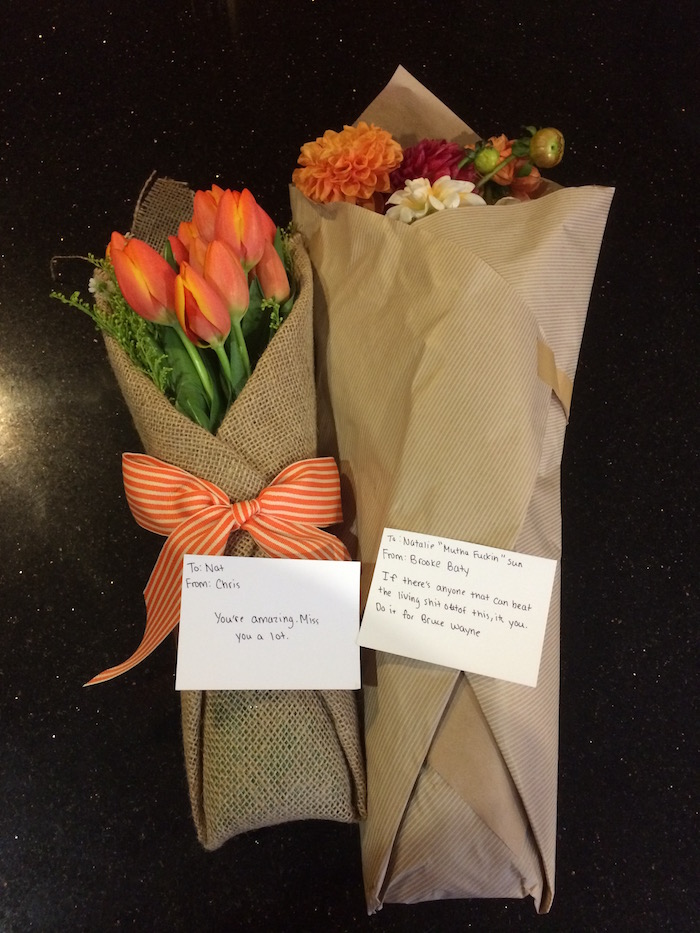 To: Nat
From: Chris
You're amazing. Miss
you a lot.
To: Natalie "Mutha Fuckin" Sun
From: Brooke Baty
If there's anyone that can beat
the living shit out of this, it you.
Do it for Bruce Wayne